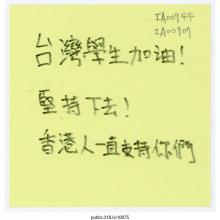 IA00744
IA00909
台灣學生加油!
堅持下去!
香港人一直支持你們
public.318.io/10875